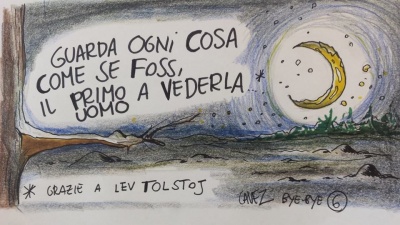 GUARDA OGNI COSA
COME SE FOSSI,
IL PRIMO A VEDERLA...*
UOMO
* GRAZIE A LEV TOLSTOJ
CAVEZ BYE-BYE 6